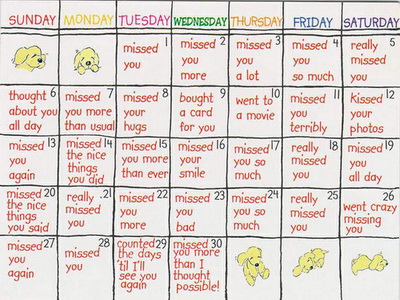 SUNDAY MONDAY TUESDAY WEDNESDAY THURSDAY FRIDAY SATURDAY
1
missed
you
2
missed
you
more
3
missed
you
a lot
4
missed
you
so much
5
really
missed
you
6
thought
about you
all day
7
missed
you more
than usual
8
missed
your
hugs
9
bought
a card
for you
10
went to
a movie
11
missed
you
terribly
12
Kissed
your
photos
13
missed
you
again
14
missed
the nice
things
you did
15
missed
you more
than ever
16
missed
your
smile
17
missed
you so
much
18
really
missed
you
19
missed
you
all day
20
missed
the nice
things
you said
21
really
missed
you
22
missed
you
more
23
missed
you
bad
24
missed
you so
much
25
really
missed
you
26
went crazy
missing
you
27
missed
you
again
28
missed
you
29
counted
the days
'til I'll
see you
again
30
missed
you more
than I
thought
possible!